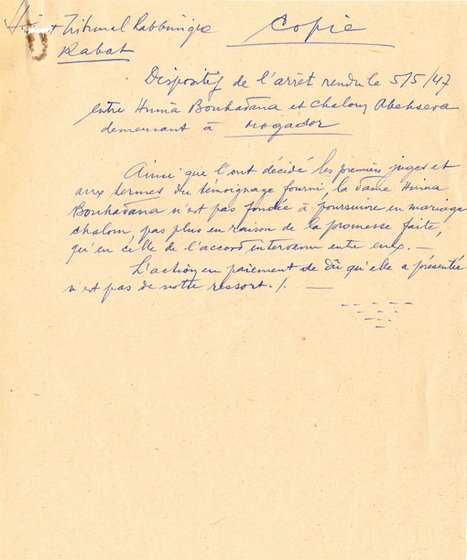 Haut Tribunal Rabbinique
Rabat
Copie
Dispositif de l'arrêt rendu le 5/5/47
entre Hnina Bouhadana et Chaloum Abehsera
demeurant à Mogador
Ainsi que l'ont décidé les premiers juges et
aux termes du témoignage fourni, la dame Hnina
Bouhadana n'est pas fondée à poursuivre en mariage
Chalom, pas plus en raison de la promesse faite,
qu'en celle de l'accord intervenu entre eux. —
L'action en paiement de dû qu'elle a présentée
n'est pas de notre ressort ./. —